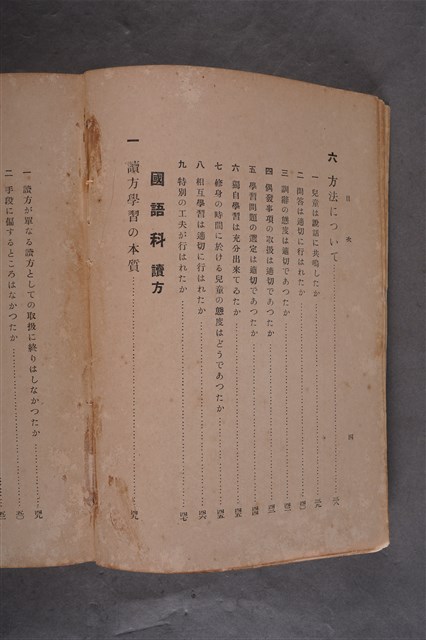 目次
四
六 方法について
一 兒童は說話に共鳴したか
二 問答は適切に行はれたか
三 訓辭の態度は適切であつたか
四 偶發事項の取扱は適切であつたか
五 學習問題の選定は適切であつたか
六 獨自學習は充分出來てゐたか
七 修身の時間に於ける兒童の態度はどうであつたか
八 相互學習は適切に行はれたか
九 特別の工夫が行はれたか
國語科讀方
一 讀方學習の本質
一 讀方が單なる讀方としての取扱に終りはしなかつたか
二 手段に偏するところはなかつたか